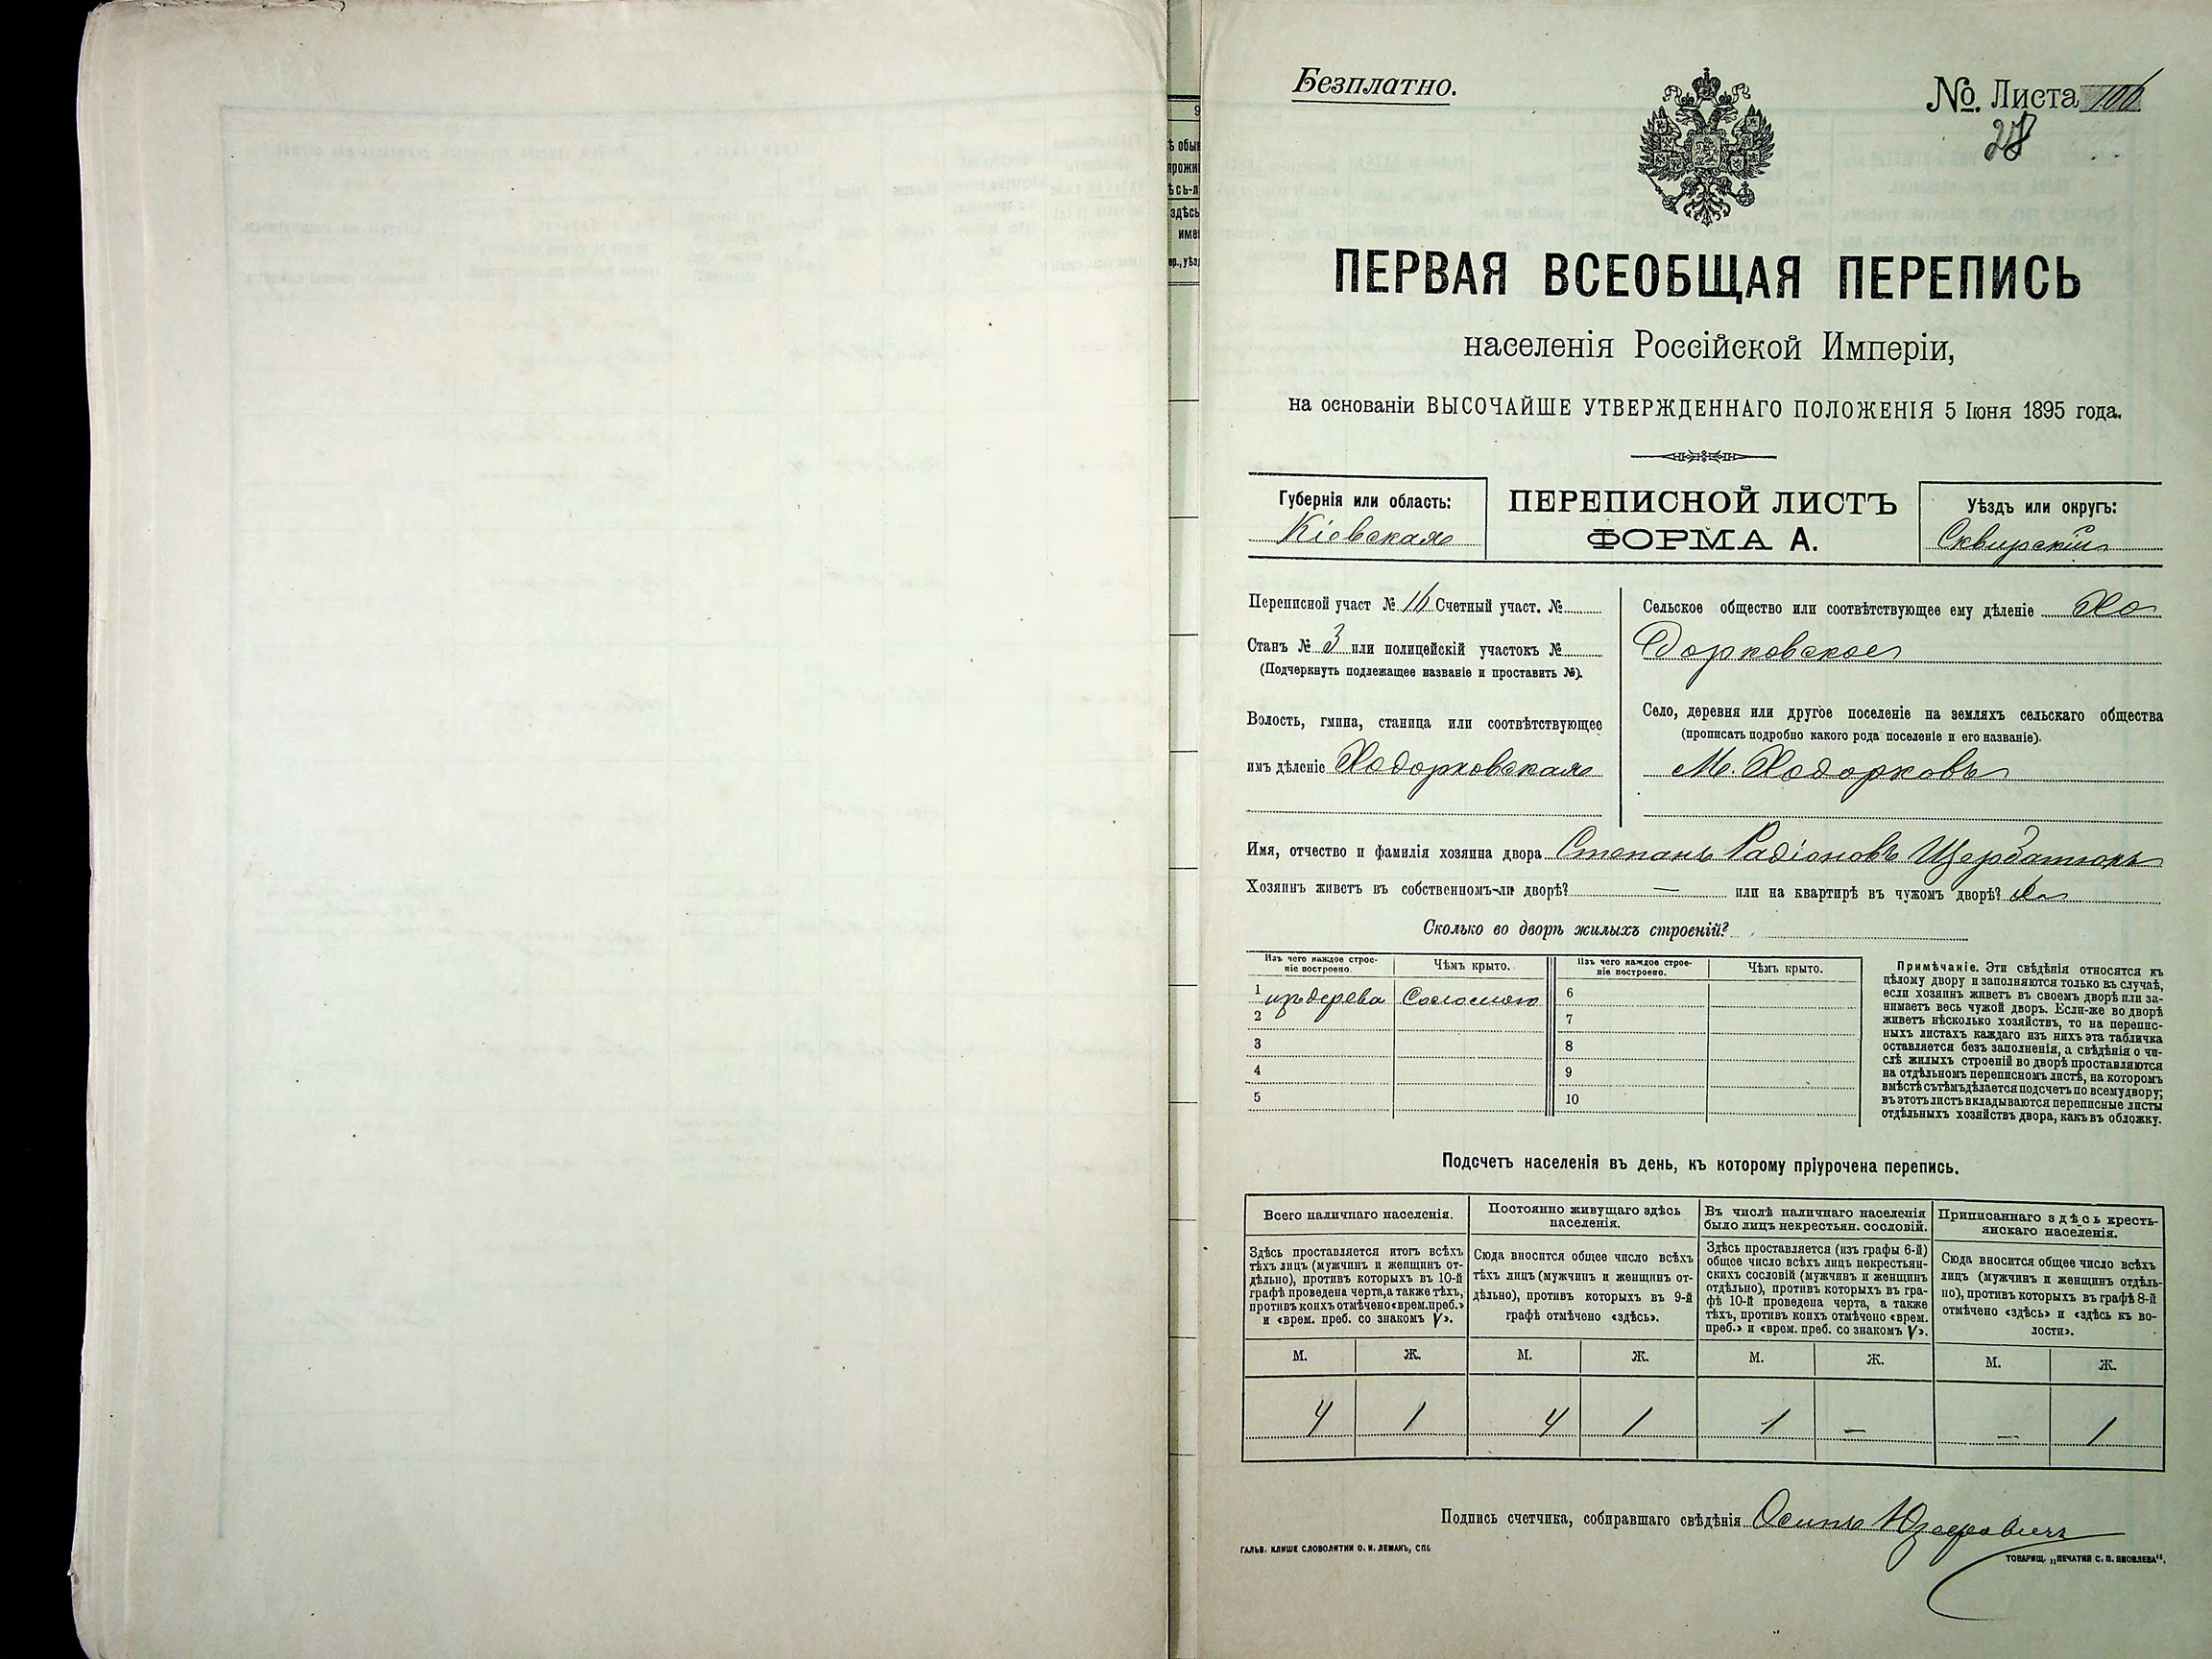 Безплатно.
№. Листа 106
28
ПЕРВАЯ ВСЕОБЩАЯ ПЕРЕПИСЬ
населенія Россійской Имперіи,
на основаніи ВЫСОЧАЙШЕ УТВЕРЖДЕННАГО ПОЛОЖЕНІЯ 5 Іюня 1895 года.
Губернія или область:
Кіевская
ПЕРЕПИСНОЙ ЛИСТЪ
ФОРМА А.
Уѣздъ или округъ:
Сквирскій
Переписной участ № 16 Счетный участ. №
Станъ № 3 или полицейскій участокъ №
(Подчеркнуть подлежащее названіе и проставить №).
Волость, гмина, станица или соотвѣтствующее
имъ дѣленіе Ходорковская
Сельское общество или соотвѣтствующее ему дѣленіе Хо
дорковское
Село, деревня или другое поселеніе на земляхъ сельскаго общества
(прописать подробно какого рода поселеніе и его названіе).
М. Ходорковъ
Имя, отчество и фамилія хозяина двора Степанъ Радіоновъ
Хозяинъ живетъ въ собственномъ-ли дворѣ? — или на квартирѣ въ чужомъ дворѣ?
Сколько во дворѣ жилыхъ строеній?
Изъ чего каждое строе-
ніе построено.
Чѣмъ крыто.
Изъ чего каждое строе-
ніе построено.
Чѣмъ крыто.
1 изъ дерева Соломою 6
2 7
3 8
4 9
5 10
Примѣчаніе. Эти свѣдѣнія относятся къ
цѣлому двору и заполняются только въ случаѣ,
если хозяинъ живетъ въ своемъ дворѣ или за-
нимаетъ весь чужой дворъ. Если-же во дворѣ
живетъ нѣсколько хозяйствъ, то на перепис-
ныхъ листахъ каждаго изъ нихъ эта табличка
оставляется безъ заполненія, а свѣдѣнія о чи-
слѣ жилыхъ строеній во дворѣ проставляются
на отдѣльномъ переписномъ листѣ, на которомъ
вмѣстѣ съ тѣмъ дѣлается подсчетъ по всему двору;
въ этотъ листъ вкладываются переписные листы
отдѣльныхъ хозяйствъ двора, какъ въ обложку.
Подсчетъ населенія въ день, къ которому пріурочена перепись.
Всего наличнаго населенія.
Здѣсь проставляется итогъ всѣхъ
тѣхъ лицъ (мужчинъ и женщинъ от-
дѣльно), противъ которыхъ въ 10-й
графѣ проведена черта, а также тѣхъ,
противъ коихъ отмѣчено «врем. преб.»
и «врем. преб. со знакомъ V».
Постоянно живущаго здѣсь
населенія.
Сюда вносится общее число всѣхъ
тѣхъ лицъ (мужчинъ и женщинъ от-
дѣльно), противъ которыхъ въ 9-й
графѣ отмѣчено «здѣсь».
Въ числѣ наличнаго населенія
было лицъ некрестьян. сословій.
Здѣсь проставляется (изъ графы 6-й)
общее число всѣхъ лицъ некрестьян-
скихъ сословій (мужчинъ и женщинъ
отдѣльно), противъ которыхъ въ гра-
фѣ 10-й проведена черта, а также
тѣхъ, противъ коихъ отмѣчено «врем.
преб.» и «врем. преб. со знакомъ V».
Приписаннаго здѣсь кресть-
янскаго населенія.
Сюда вносится общее число всѣхъ
лицъ (мужчинъ и женщинъ отдѣль-
но), противъ которыхъ въ графѣ 8-й
отмѣчено «здѣсь» и «здѣсь къ во-
лости».
М. Ж. М. Ж. М. Ж. М. Ж.
4 1 4 1 1 — — 1
Подпись счетчика, собиравшаго свѣдѣнія Осипъ
ГАЛЬВ. КЛИШЕ СЛОВОЛИТНИ О. И. ЛЕМАНЪ, СПБ.
ТОВАРИЩ. „ПЕЧАТНЯ С. П. ЯКОВЛЕВА".